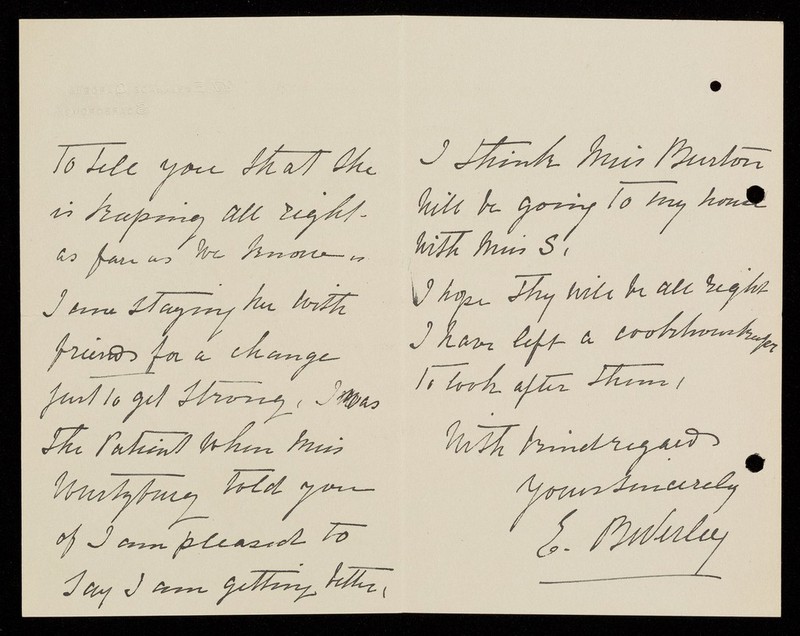 To tell you that she
is keeping all right -
as far as we know -
I am staying here with
friends for a change
just to get strong, I was
the Patient when Miss
Wurtzburg told you
of I am pleased to
say I am getting better,
I think Miss Burton
will be going to my house
with Miss S,
I hope they will be all right
I have left a cookhousekeeper
to look after them,
With kind regards
Yours sincerely
E. Beverley